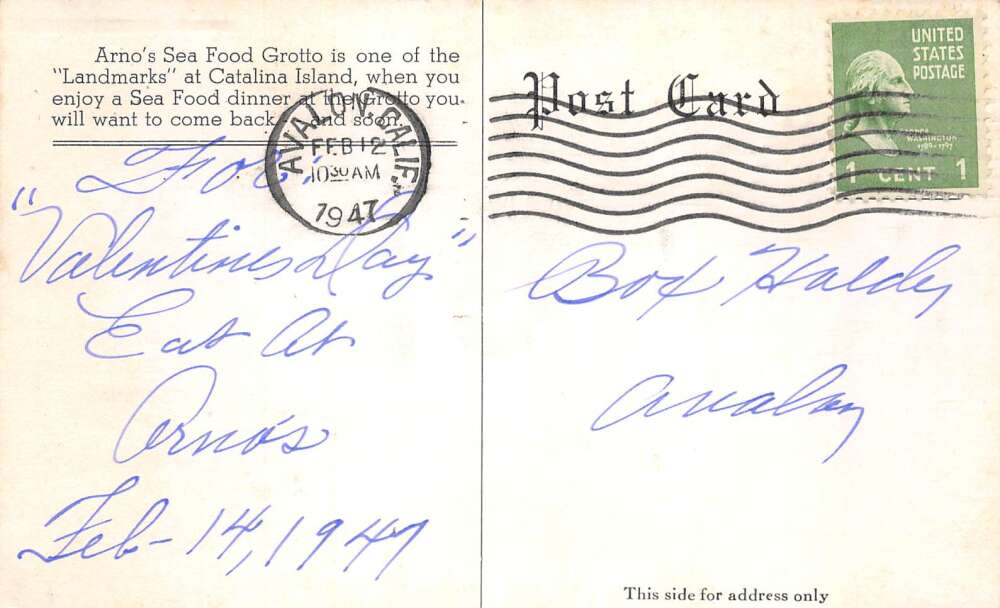 Arno's Sea Food Grotto is one of the
"Landmarks" at Catalina Island, when you
enjoy a Sea Food dinner at the Grotto you
will want to come back and soon.
For:
"Valentines Day"
Eat At
Arno's
Feb-14, 1947
AVALON, CALIF.
FEB 12
10 30 AM
1947
Post Card
UNITED
STATES
POSTAGE
WASHINGTON
1789-1797
1 CENT 1
Box Holder
Avalon
This side for address only